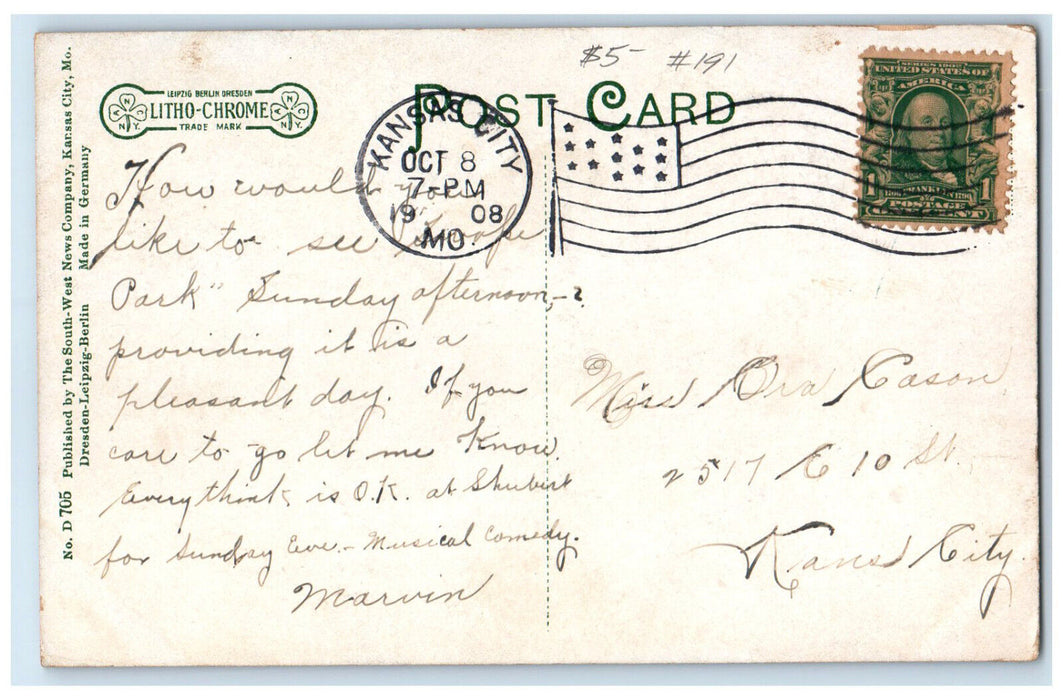 $5- #191
LEIPZIG BERLIN DRESDEN
LITHO-CHROME
TRADE MARK
POST CARD
KANSAS CITY
OCT 8
7-PM
1908
MO.
SERIES 1902
UNITED STATES OF
AMERICA
1 FRANKLIN 1
POSTAGE
ONE CENT
No. D 705 Published by The South-West News Company, Kansas City, Mo.
Dresden-Leipzig-Berlin Made in Germany
How would you
like to see "Swope
Park" Sunday afternoon,-?
providing it is a
pleasant day. If you
care to go let me know.
Every think is O.K. at Shubert
for Sunday Eve.- Musical Comedy.
Marvin
Miss Ora Cason
2517 E 10 St.
Kans City.